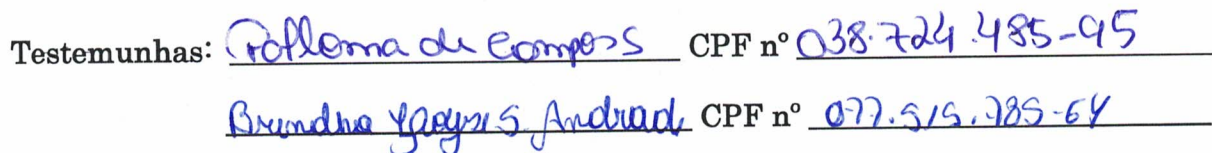 Testemunhas: de Campos CPF nº 038.724.485-95
Brendha Andrad CPF nº 077.515.785-64